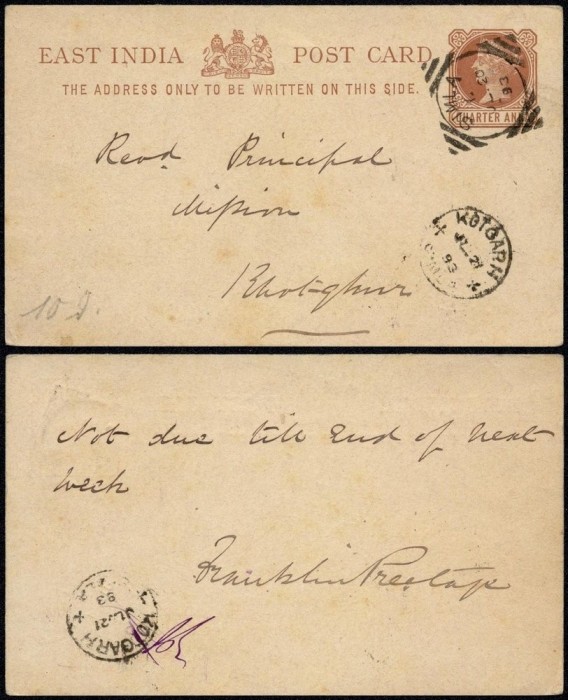 EAST INDIA POST CARD
THE ADDRESS ONLY TO BE WRITTEN ON THIS SIDE.
QUARTER AN
Revd Principal
Mission
Khotghur
KOTGARH
JL 21
93
10 d.
Not due till End of next
week
Franklin Prestage
KOTGARH
JL 21
93